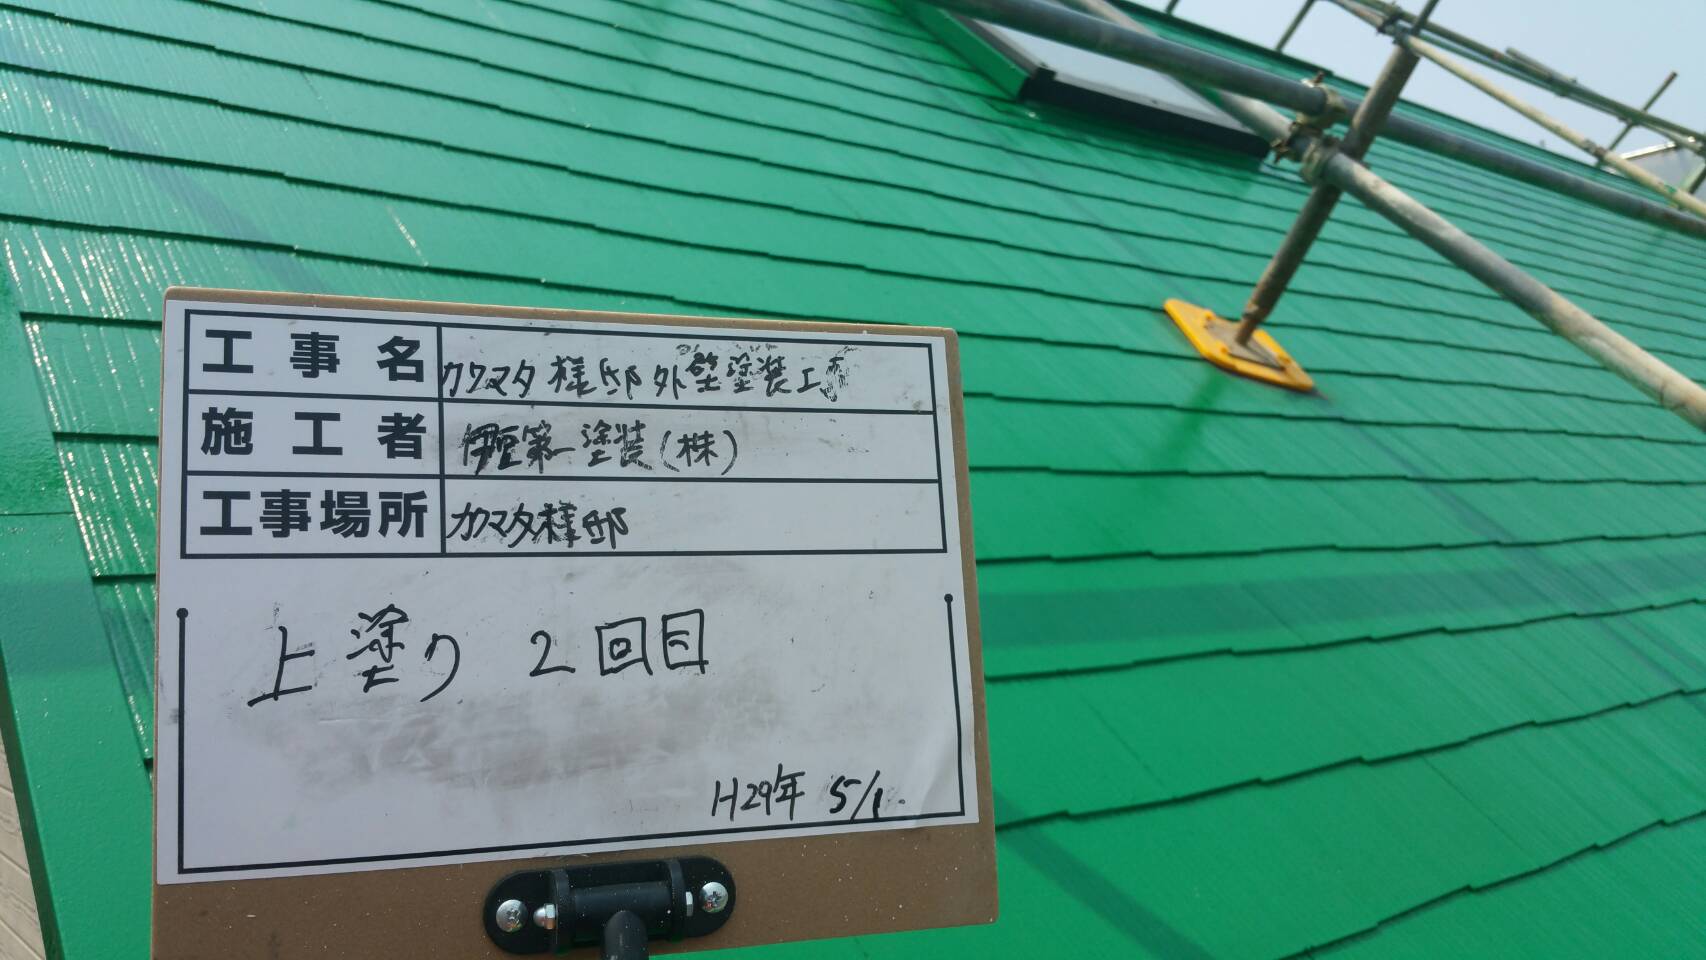 工事名 カワマタ様邸 外壁塗装工事
施工者 伊豆第一塗装(株)
工事場所 カワマタ様邸
上塗り 2回目
H29年 5/1.